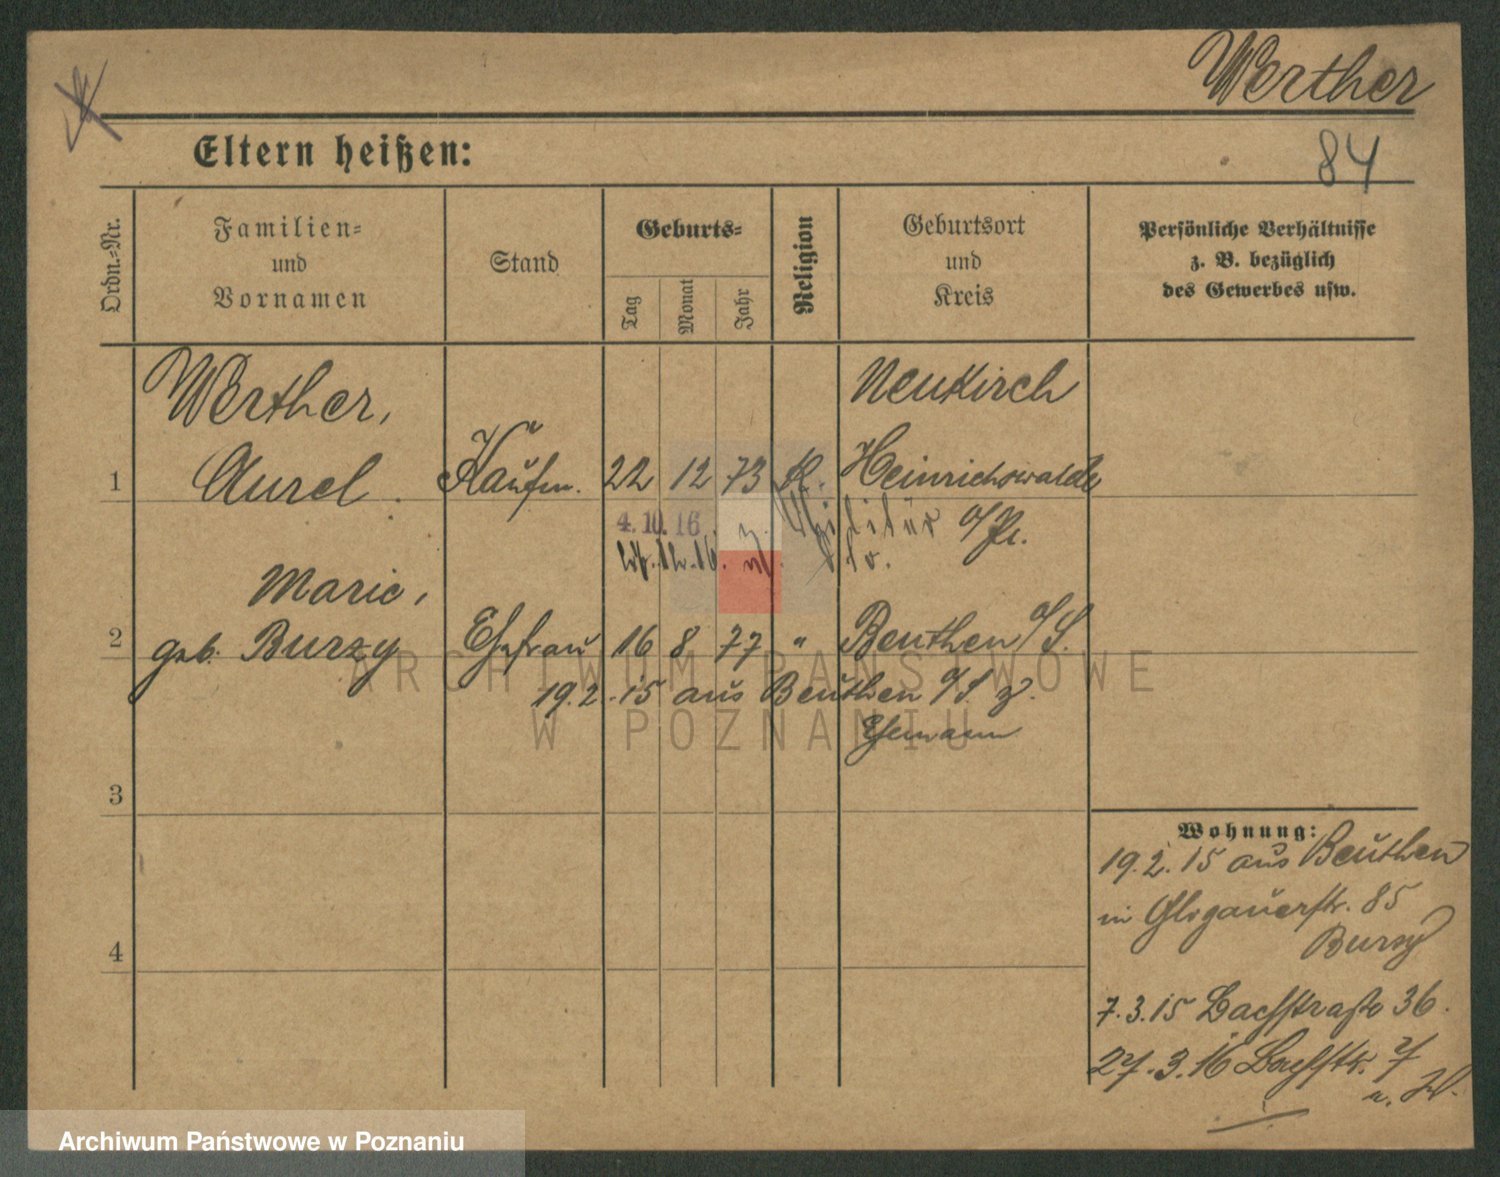 Werther
84
Eltern heißen:
Ordn.-Nr.
Familien- und Vornamen
Stand
Geburts-
Tag
Monat
Jahr
Religion
Geburtsort und Kreis
Persönliche Verhältnisse
z. B. bezüglich
des Gewerbes usw.
Werther,
Neukirch
1 Aurel. Kaufm. 22 12 73 K. Heinrichswalde
4.10.16 z. Militär
Marie,
2 geb. Burzy Ehefrau 16 8 77 " Beuthen O/S.
19.2.15 aus Beuthen O/S. z.
Ehemann
3
4
Wohnung:
19.2.15 aus Beuthen
in Glogauerstr. 85
Burzy
7.3.15 Bachstraße 36.
27.3.16 Bachstr. 7
ARCHIWUM PAŃSTWOWE
W POZNANIU
Archiwum Państwowe w Poznaniu